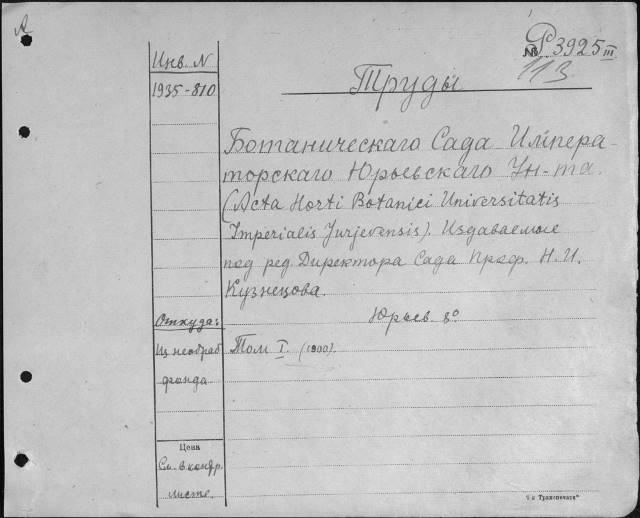 Инв. N
1935-810
Рс 3925 III
№
113
Труды
Ботаническаго Сада Импера-
торскаго Юрьевскаго Ун-та.
(Acta Horti Botanici Universitatis
Imperialis Jurjevensis). Издаваемые
под ред. Директора Сада Проф. Н. И.
Кузнецова.
Юрьев 8°.
Откуда:
Из необраб
фонда
Том I. (1900).
Цена
См. в конф.
листе.